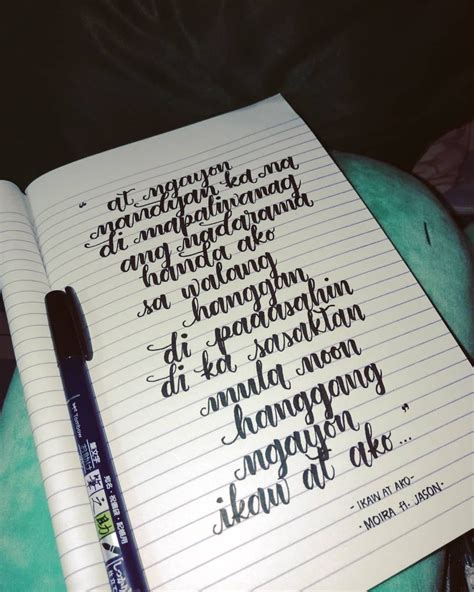 " at ngayon
nandyan ka na
di mapaliwanag
ang nadarama
handa ako
sa walang
hanggan
di paaasahin
di ka sasaktan
mula noon
hanggang
ngayon "
ikaw at ako...
- IKAW AT AKO -
- MOIRA ft. JASON -
Tombow
筆文字